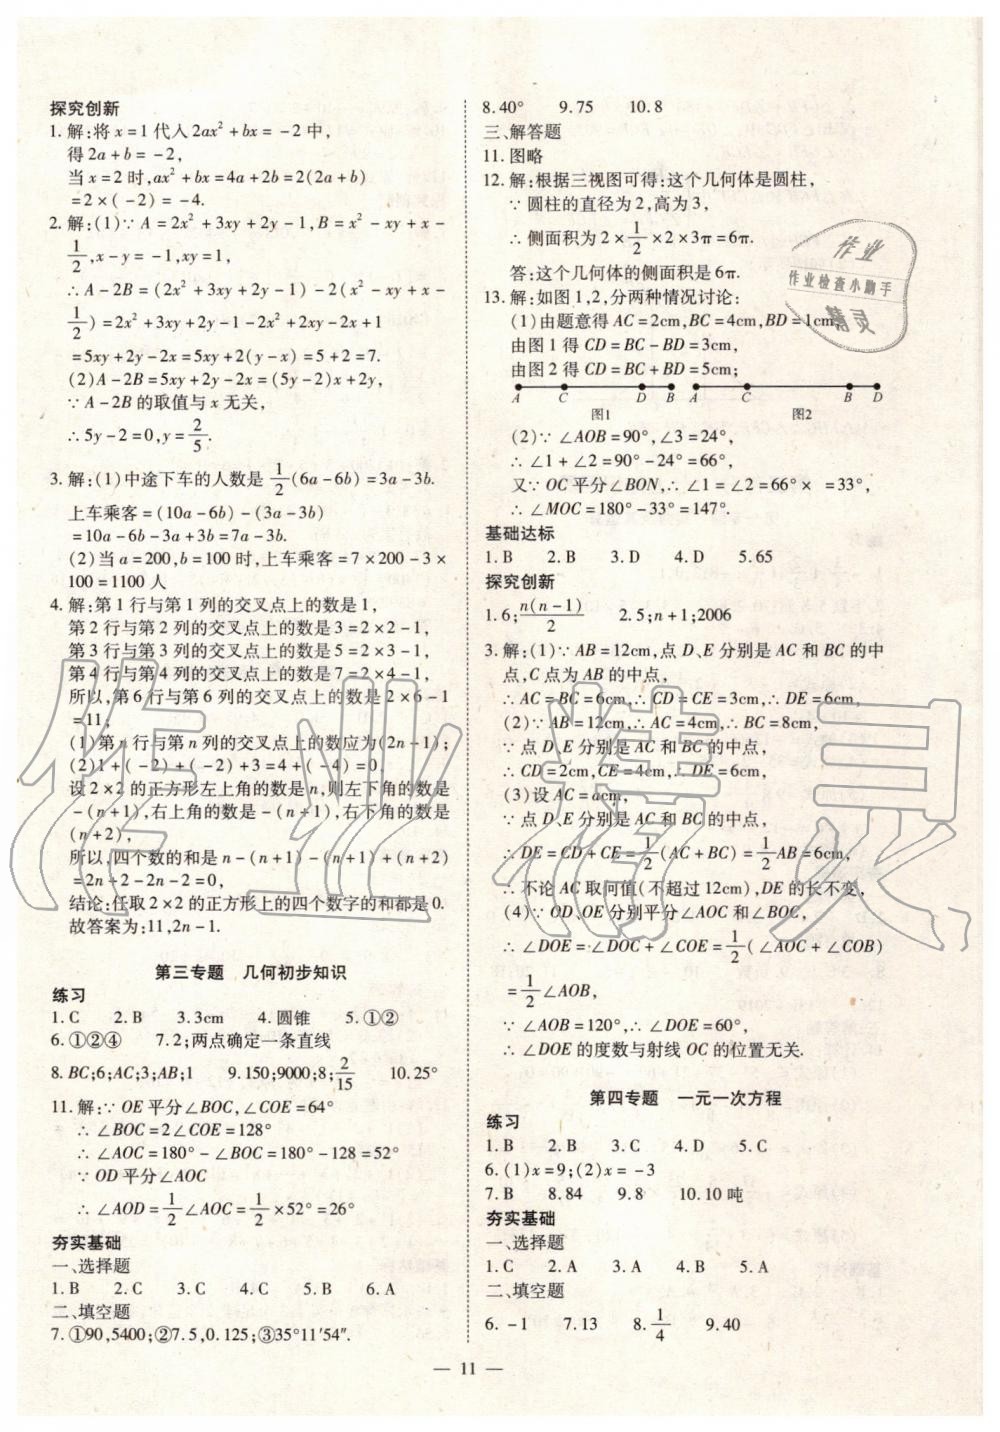 探究创新
1. 解:将 x=1 代入 2ax²+bx=-2 中,
得 2a+b=-2,
当 x=2 时,ax²+bx=4a+2b=2(2a+b)
=2×(-2)=-4.
2. 解:(1)∵ A=2x²+3xy+2y-1,B=x²-xy+x-
1/2,x-y=-1,xy=1,
∴ A-2B=(2x²+3xy+2y-1)-2(x²-xy+x-
1/2)=2x²+3xy+2y-1-2x²+2xy-2x+1
=5xy+2y-2x=5xy+2(y-x)=5+2=7.
(2)A-2B=5xy+2y-2x=(5y-2)x+2y,
∵ A-2B 的取值与 x 无关,
∴ 5y-2=0,y=2/5.
3. 解:(1)中途下车的人数是 1/2(6a-6b)=3a-3b.
上车乘客=(10a-6b)-(3a-3b)
=10a-6b-3a+3b=7a-3b.
(2)当 a=200,b=100 时,上车乘客=7×200-3×
100=1100 人
4. 解:第 1 行与第 1 列的交叉点上的数是 1,
第 2 行与第 2 列的交叉点上的数是 3=2×2-1,
第 3 行与第 3 列的交叉点上的数是 5=2×3-1,
第 4 行与第 4 列的交叉点上的数是 7=2×4-1,
所以,第 6 行与第 6 列的交叉点上的数是 2×6-1
=11;
(1)第 n 行与第 n 列的交叉点上的数应为(2n-1);
(2)1+(-2)+(-2)+3=4+(-4)=0.
设 2×2 的正方形左上角的数是 n,则左下角的数是
-(n+1),右上角的数是-(n+1),右下角的数是
(n+2),
所以,四个数的和是 n-(n+1)-(n+1)+(n+2)
=2n+2-2n-2=0,
结论:任取 2×2 的正方形上的四个数字的和都是 0.
故答案为:11,2n-1.
第三专题 几何初步知识
练习
1. C 2. B 3. 3cm 4. 圆锥 5. ①②
6. ①②④ 7. 2;两点确定一条直线
8. BC;6;AC;3;AB;1 9. 150;9000;8;2/15 10. 25°
11. 解:∵ OE 平分∠BOC,∠COE=64°
∴ ∠BOC=2∠COE=128°
∴ ∠AOC=180°-∠BOC=180°-128°=52°
∵ OD 平分∠AOC
∴ ∠AOD=1/2∠AOC=1/2×52°=26°
夯实基础
一、选择题
1. B 2. C 3. C 4. C 5. B 6. A
二、填空题
7. ①90,5400;②7.5,0.125;③35°11′54″.
8. 40° 9. 75 10. 8
三、解答题
11. 图略
12. 解:根据三视图可得:这个几何体是圆柱,
∵ 圆柱的直径为 2,高为 3,
∴ 侧面积为 2×1/2×2×3π=6π.
答:这个几何体的侧面积是 6π.
13. 解:如图 1,2,分两种情况讨论:
(1)由题意得 AC=2cm,BC=4cm,BD=1cm,
由图 1 得 CD=BC-BD=3cm,
由图 2 得 CD=BC+BD=5cm;
A C D B A C B D
图1 图2
(2)∵ ∠AOB=90°,∠3=24°,
∴ ∠1+∠2=90°-24°=66°,
又∵ OC 平分∠BON,∴ ∠1=∠2=66°× =33°,
∴ ∠MOC=180°-33°=147°.
基础达标
1. B 2. B 3. D 4. D 5. 65
探究创新
1. 6;n(n-1)/2 2. 5;n+1;2006
3. 解:(1)∵ AB=12cm,点 D、E 分别是 AC 和 BC 的中
点,C 点为 AB 的中点,
∴ AC=BC=6cm,∴ CD=CE=3cm,∴ DE=6cm,
(2)∵ AB=12cm,∴ AC=4cm,∴ BC=8cm,
∵ 点 D、E 分别是 AC 和 BC 的中点,
∴ CD=2cm,CE=4cm,∴ DE=6cm,
(3)设 AC=acm,
∵ 点 D、E 分别是 AC 和 BC 的中点,
∴ DE=CD+CE=1/2(AC+BC)=1/2AB=6cm,
∴ 不论 AC 取何值(不超过 12cm),DE 的长不变,
(4)∵ OD、OE 分别平分∠AOC 和∠BOC,
∴ ∠DOE=∠DOC+∠COE=1/2(∠AOC+∠COB)
=1/2∠AOB,
∵ ∠AOB=120°,∴ ∠DOE=60°,
∴ ∠DOE 的度数与射线 OC 的位置无关.
第四专题 一元一次方程
练习
1. B 2. B 3. C 4. D 5. C
6. (1)x=9;(2)x=-3
7. B 8. 84 9. 8 10. 10 吨
夯实基础
一、选择题
1. C 2. A 3. C 4. B 5. A
二、填空题
6. -1 7. 13 8. 1/4 9. 40
— 11 —
作业
作业检查小助手
精灵
作业精灵